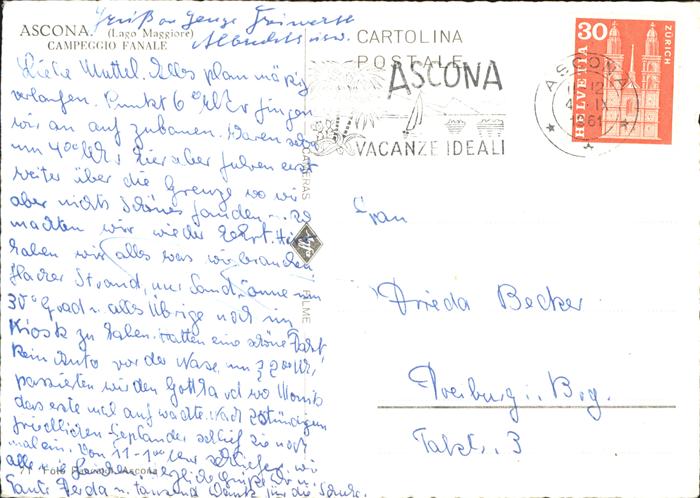 Gruß an
ASCONA. (Lago Maggiore)
CAMPEGGIO FANALE
Liebe Muttel. Alles planmäßig
verlaufen. Punkt 6 Uhr fingen
wir an auf zubauen. Waren schon
um 4 Uhr hier aber fuhren erst
weiter über die Grenze wo wir
aber nichts schönes fanden u. so
machten wir wieder kehrt. Hier
haben wir alles was wir brauchen
flacher Strand, nur Sand, Sonne um
30° Grad u. alles Übrige noch im
Kiosk zu haben. Hatten eine schöne Fahrt
kein Auto vor der Nase, um
passierten wir den Gotthard wo
das erste mal auf wachte. Nach
friedlichen schlief sie noch
mal ein. Von 11-1 schliefen wir
alle
77 Foto Ascona
u. tausend Dank für die
AGFA
FILME
CARTOLINA
POSTALE
ASCONA
VACANZE IDEALI
ASCONA
12
IX
1961
HELVETIA
30
ZÜRICH
Frau
Frieda Becker
Freiburg i. Brg.
Talstr. 3